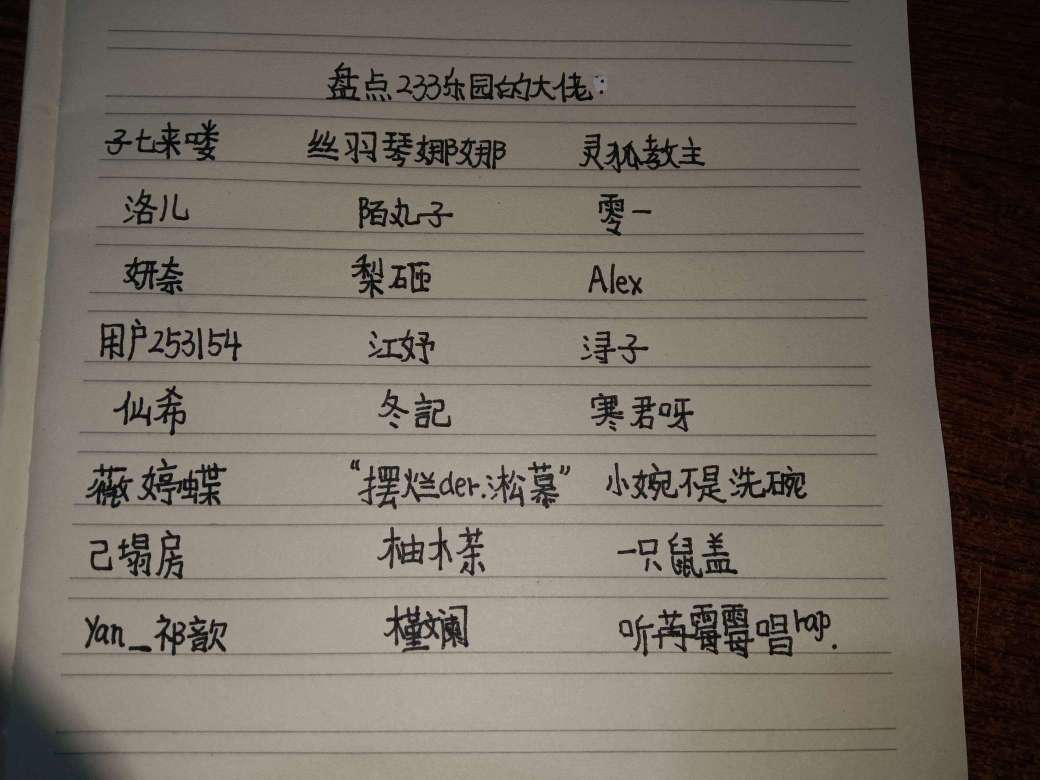 盘点233乐园的大佬:
子七来喽 丝羽琴娜娜 灵狐教主
洛儿 陌丸子 零一
妍奈 梨砸 Alex
用户253154 江妤 浔子
仙希 冬記 寒君呀
薇婷蝶 “摆烂der.淞慕” 小婉不是洗碗
己塌房 柚木茶 一只鼠盖
Yan_祁歆 槿斓 听芮霉霉唱rap.